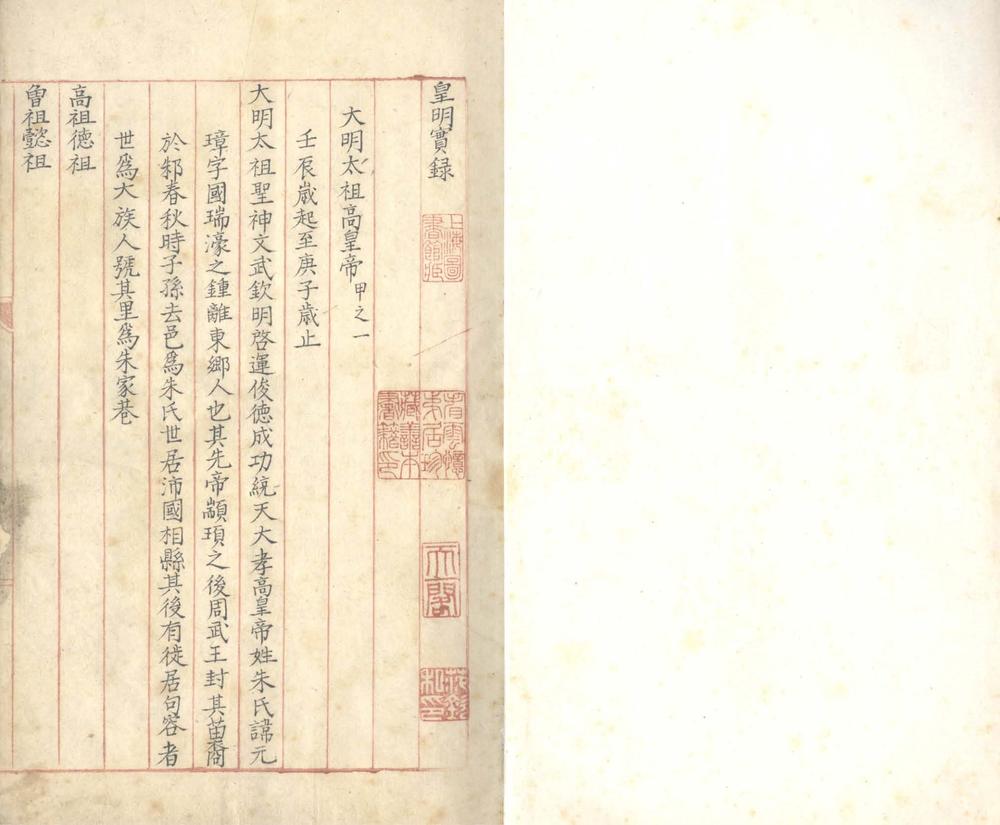 皇明實録
大明太祖高皇帝甲之一
壬辰嵗起至庚子歳止
大明太祖聖神文武欽明啓運俊徳成功統天大孝高皇帝姓朱氏諱元
璋字國瑞濠之鍾離東鄉人也其先帝顓頊之後周武王封其苗裔
於邾春秋時子孫去邑爲朱氏世居沛國相縣其後有徙居句容者
世爲大族人號其里爲朱家巷
高祖徳祖
曾祖懿祖
上海圖書館藏